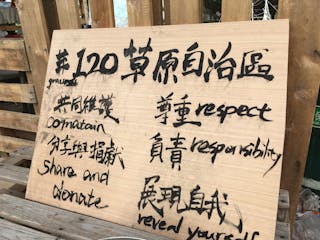 華120草原自治區
共同維護
comatain
分享與捐獻
share and
donate
尊重respect
負責responsibility
展現自我
reveal yourself